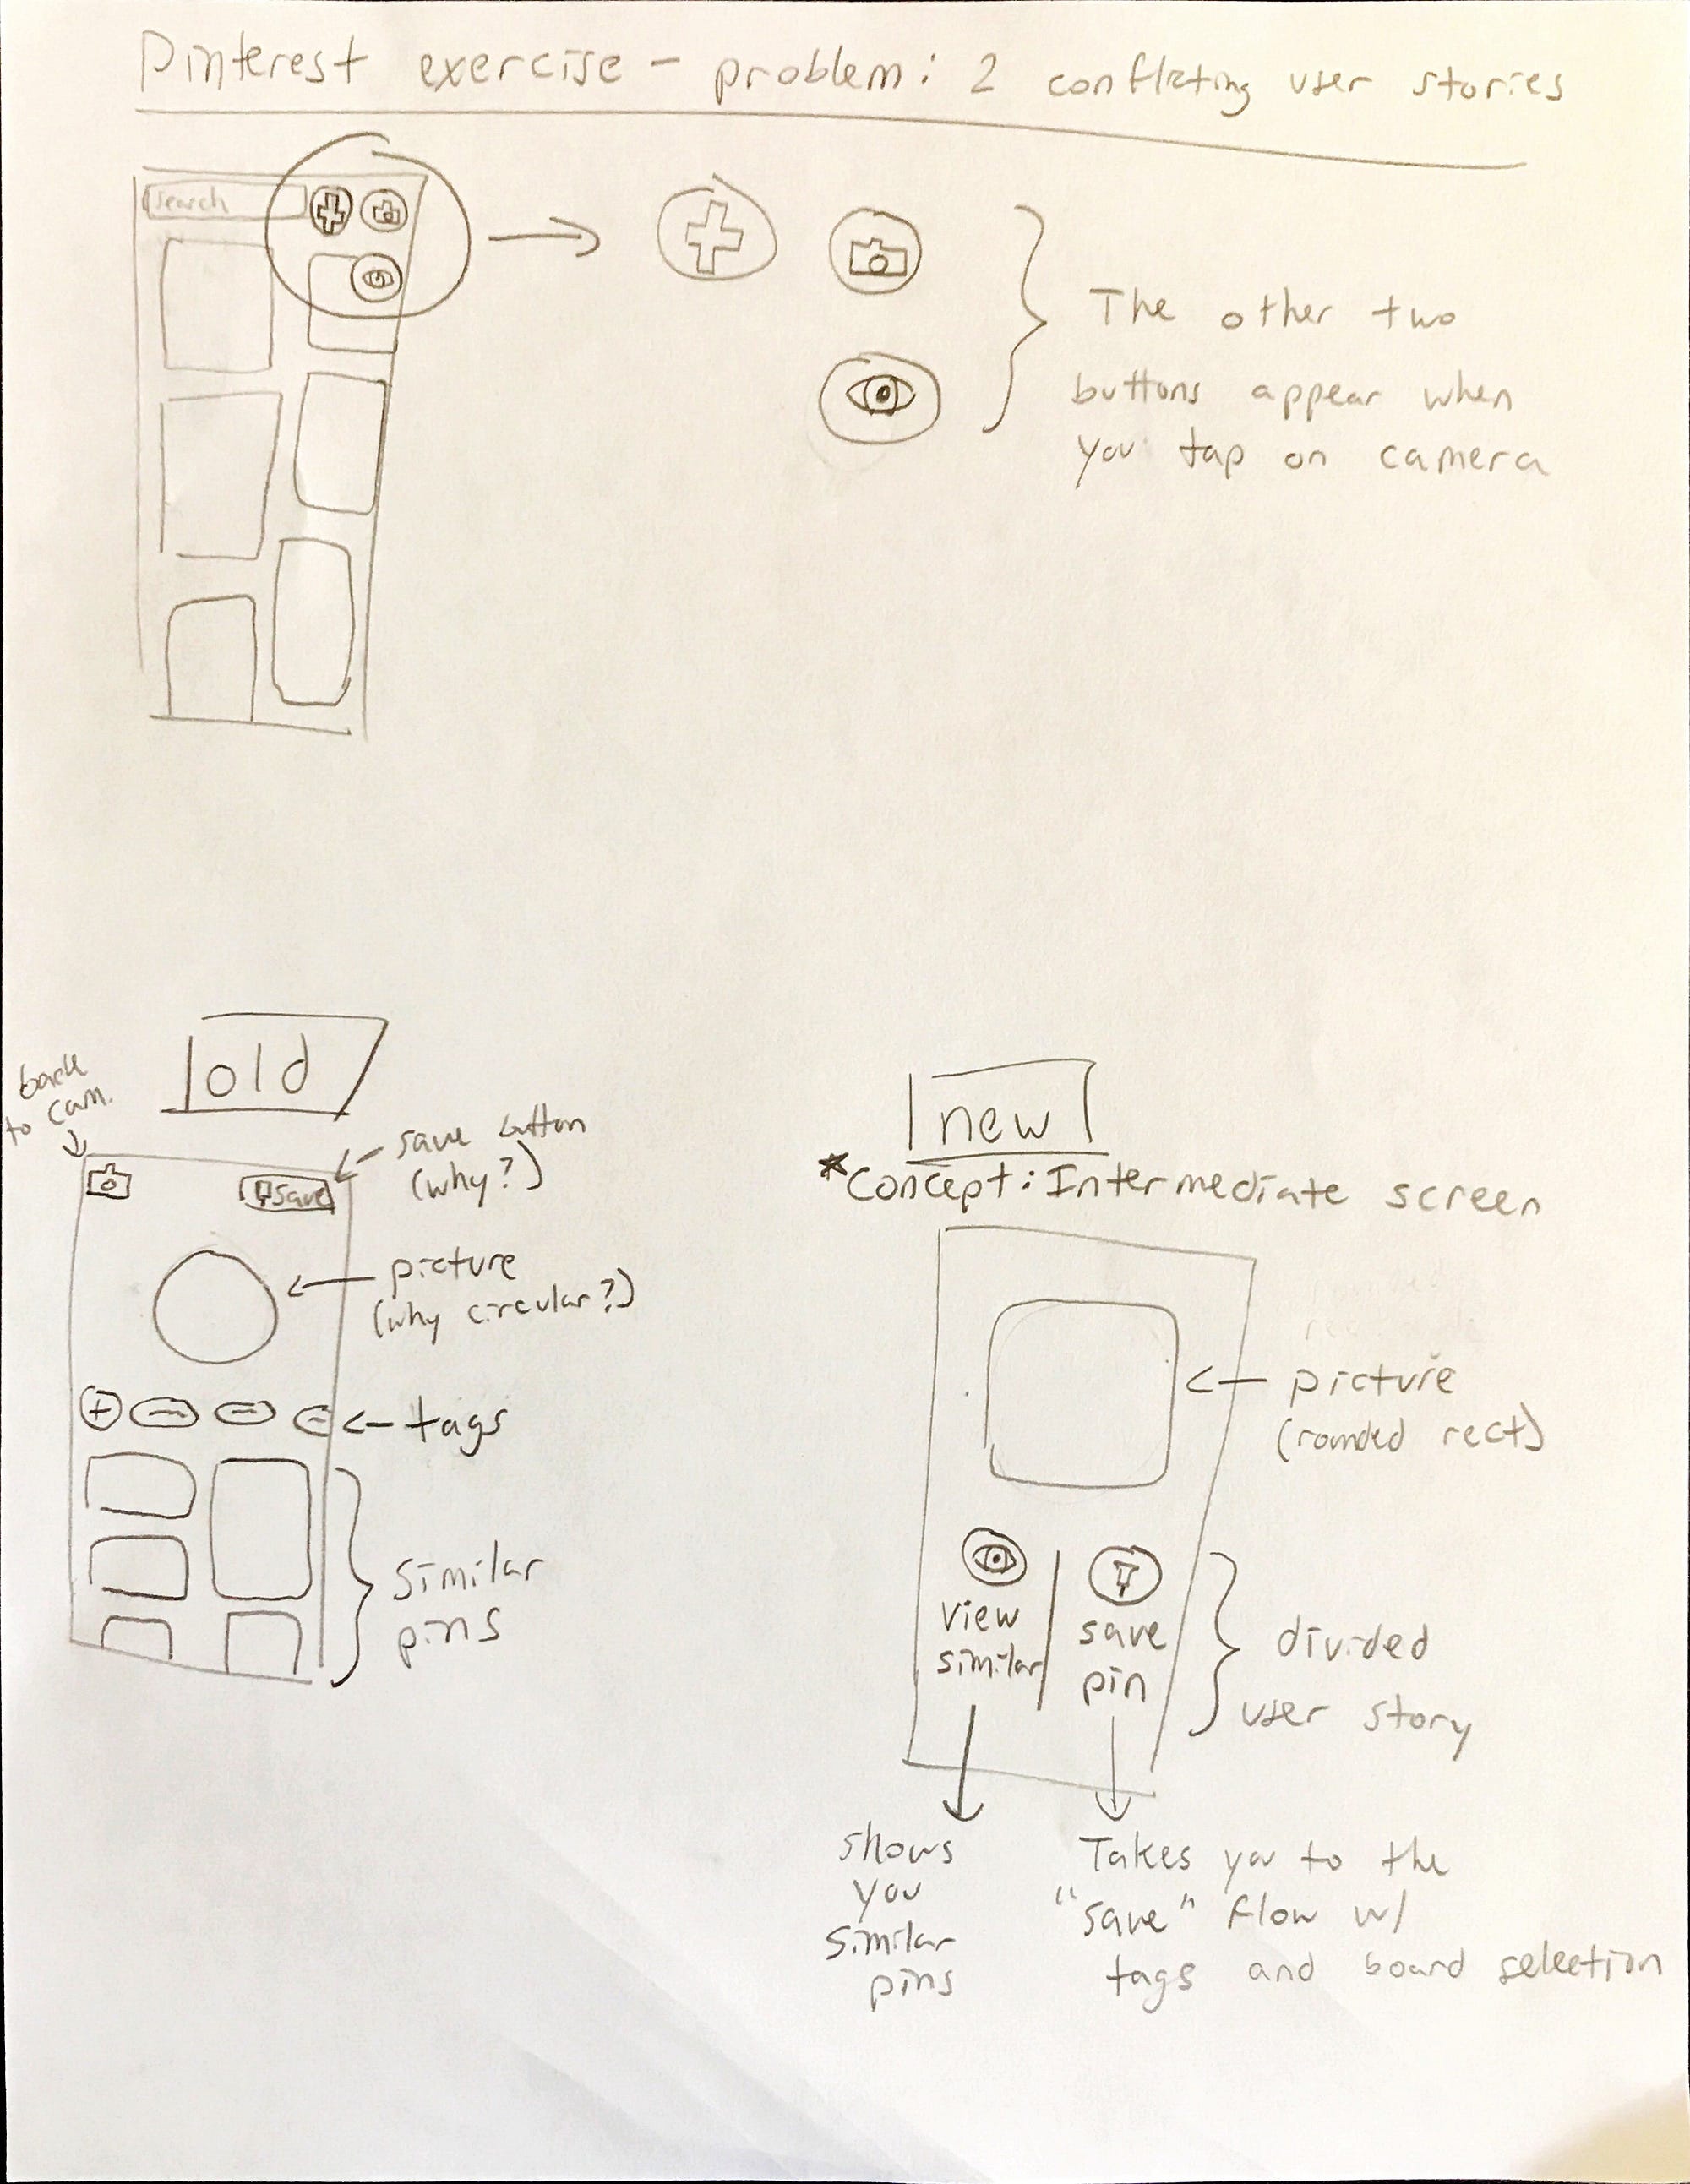 Pinterest exercise - problem: 2 conflicting user stories
search
The other two
buttons appear when
you tap on camera
old
back
to cam.
save button
(why?)
save
picture
(why circular?)
tags
similar
pins
new
*Concept: Intermediate screen
picture
(rounded rect)
view
similar
save
pin
divided
user story
shows
you
similar
pins
Takes you to the
"save" flow w/
tags and board selection